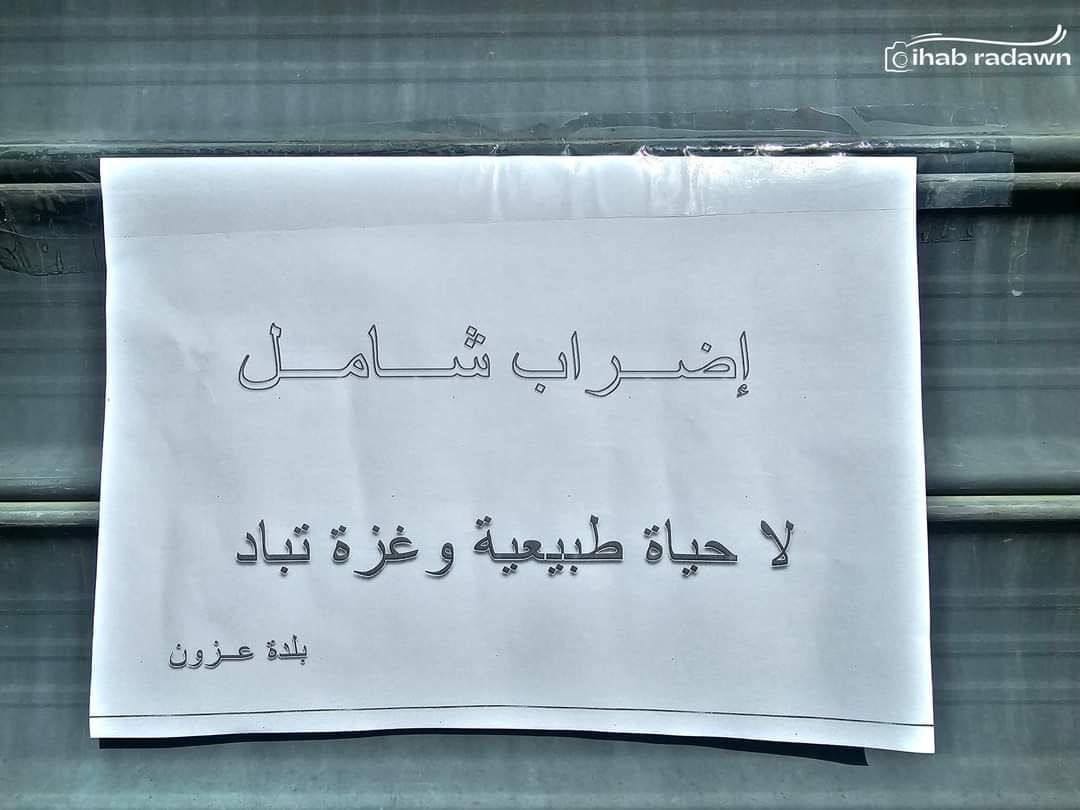 ihab radawn
إضراب شامل
لا حياة طبيعية و غزة تباد
بلدة عزون